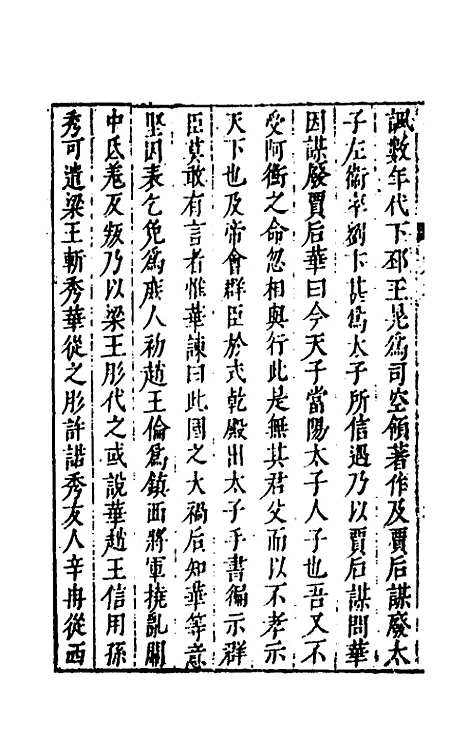 諷數年代下邳王晃爲司空領著作及賈后謀廢太
子左衛率劉卞甚爲太子所信遇乃以賈后謀問華
因謀廢賈后華曰今天子當陽太子人子也吾又不
受阿衡之命忽相與行此是無其君父而以不孝示
天下也及帝會群臣於式乾殿出太子手書徧示群
臣莫敢有言者惟華諫曰此國之大禍后知華等意
堅因表乞免爲庶人初趙王倫爲鎮西將軍撓亂關
中氐羗反叛乃以梁王肜代之或說華趙王信用孫
秀可遣梁王斬秀華從之肜許諾秀友人辛冉從西